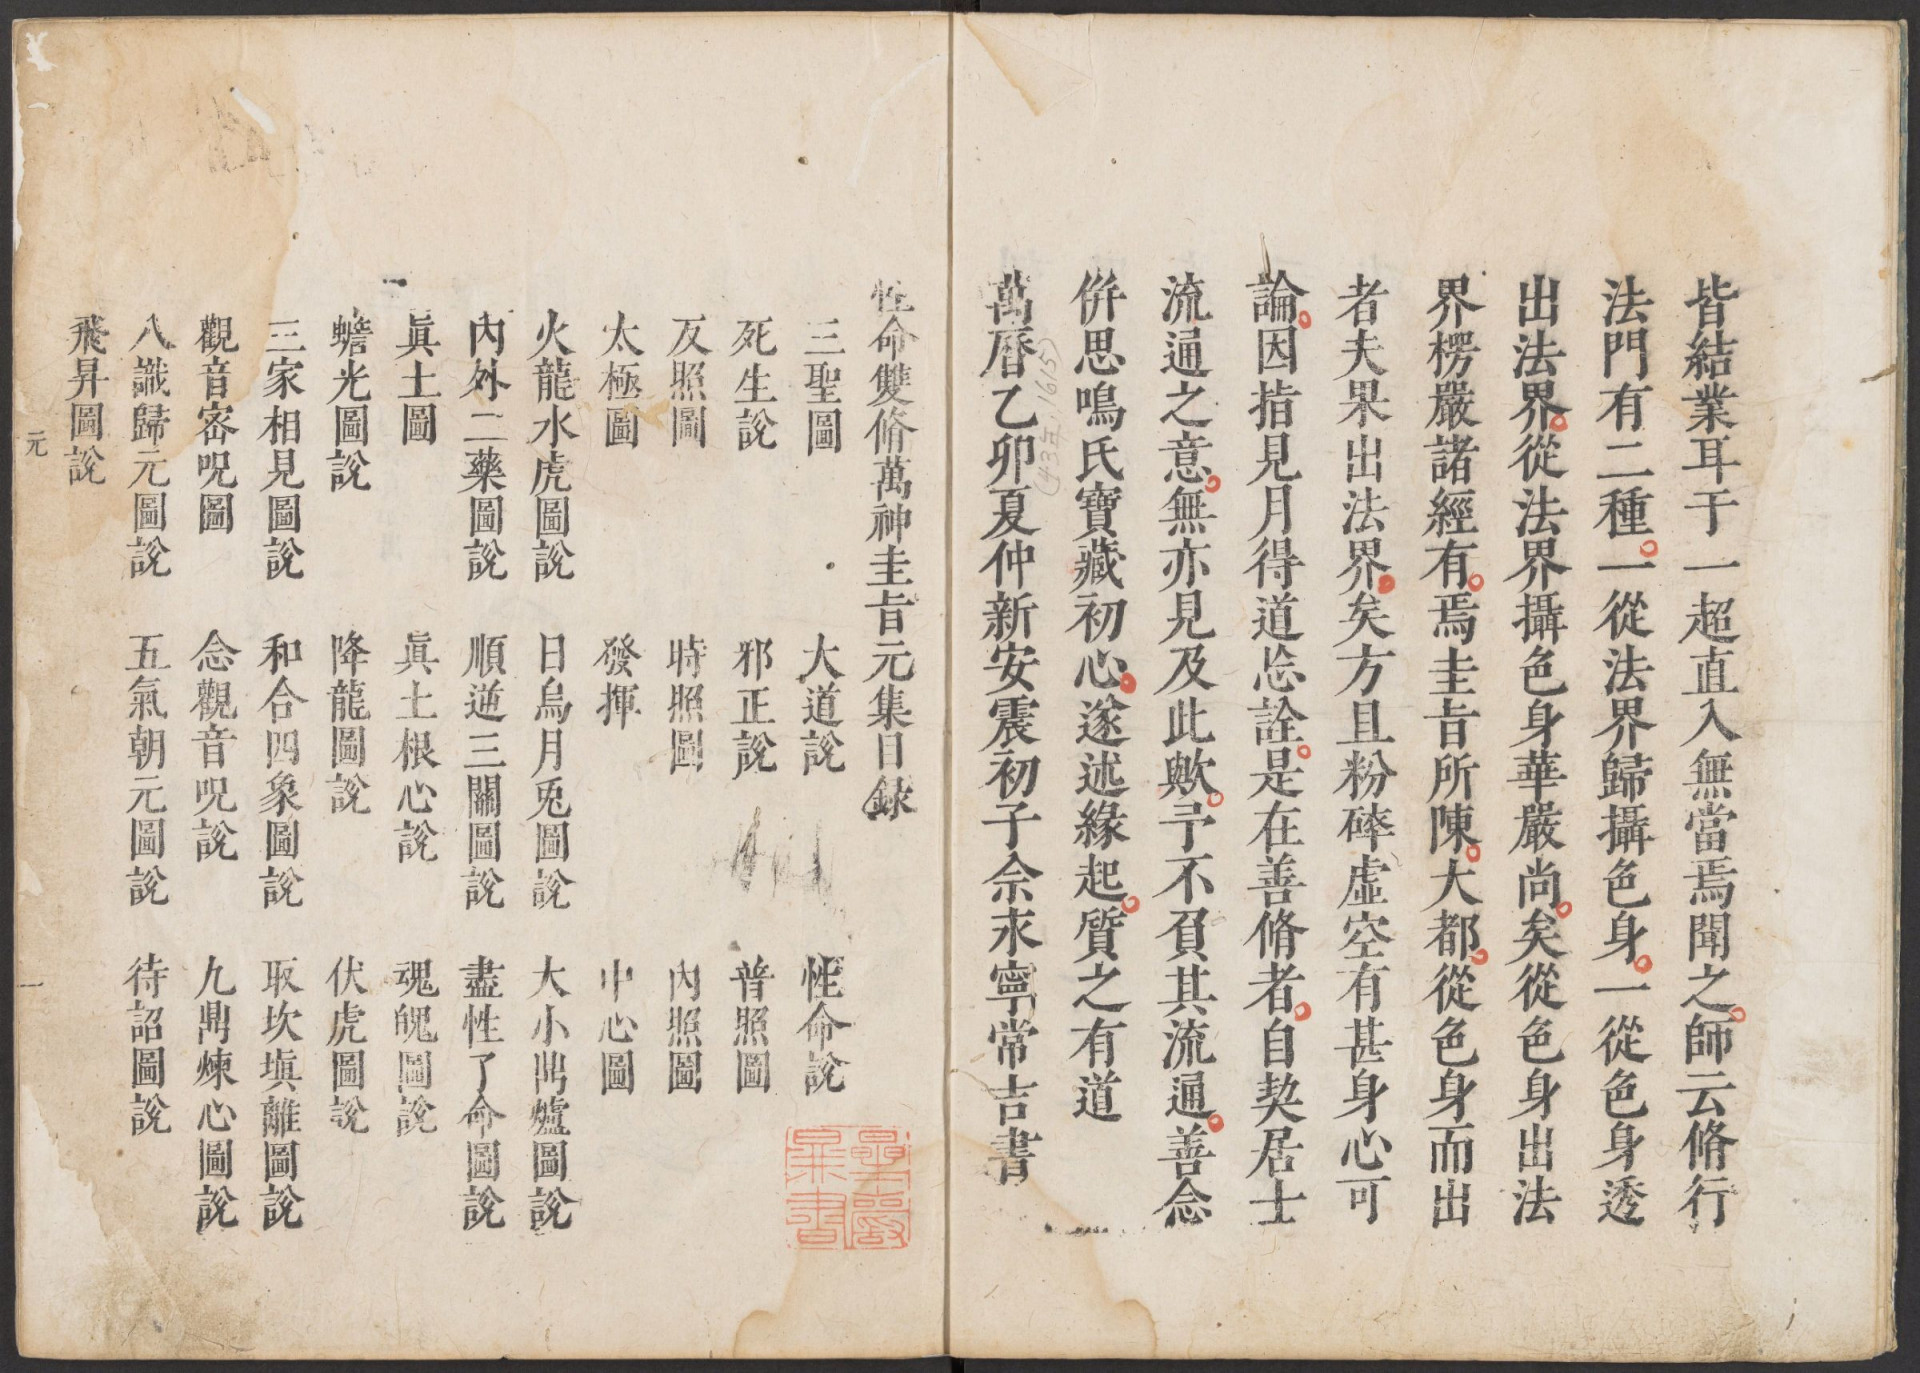 皆結業耳于一超直入無當焉聞之師云脩行
法門有二種一從法界歸攝色身一從色身透
出法界從法界攝色身華嚴尚矣從色身出法
界楞嚴諸經有焉圭旨所陳大都從色身而出
者夫果出法界矣方且粉碎虛空有甚身心可
論因指見月得道忘詮是在善脩者自契居士
流通之意無亦見及此歟予不負其流通善念
併思鳴氏寶藏初心遂述緣起質之有道
萬曆乙卯夏仲新安震初子余永寧常吉書
(43年.1615)
性命雙脩萬神圭旨元集目録
三聖圖 大道說 性命說
死生說 邪正說 普照圖
反照圖 時照圖 內照圖
太極圖 發揮 中心圖
火龍水虎圖說 日烏月兎圖說 大小鼎爐圖說
內外二藥圖說 順逆三關圖說 盡性了命圖說
眞土圖 眞土根心說 魂魄圖說
蟾光圖說 降龍圖說 伏虎圖說
三家相見圖說 和合四象圖說 取坎塡離圖說
觀音密呪圖 念觀音呪說 九鼎煉心圖說
八識歸元圖說 五氣朝元圖說 待詔圖說
飛昇圖說
元
一